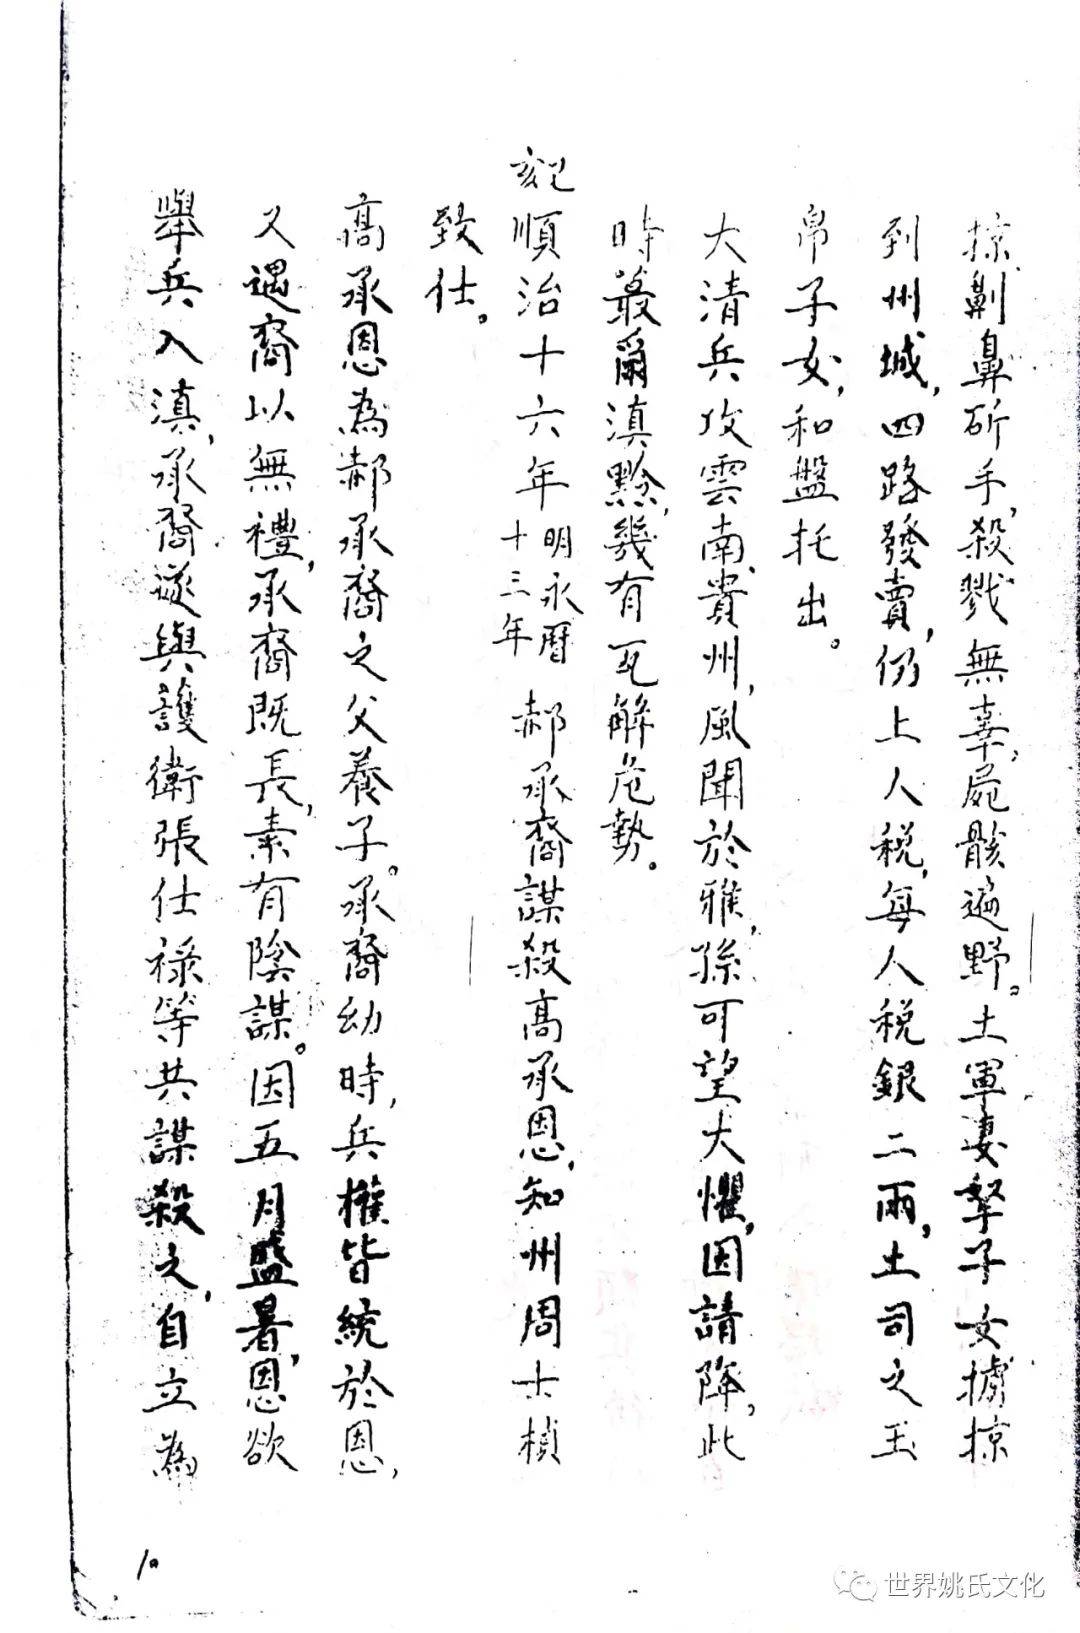 掠、劓鼻斫手，殺戮無辜，屍骸遍野。土軍妻孥子女擄掠
到州城，四路發賣，仍上人税，每人税銀二兩，土司之玉
帛子女，和盤托出。
大清兵攻雲南、貴州，風聞於雅，孫可望大懼，因請降，此
時蕞爾滇黔，幾有瓦解危勢。
己亥順治十六年明永曆十三年郝承裔謀殺高承恩，知州周士楨
致仕。
高承恩為郝承裔之父養子。承裔幼時，兵權皆統於恩，
又遇裔以無禮，承裔既長，素有陰謀。因五月盛暑，恩欲
舉兵入滇，承裔遂與護衛張仕祿等共謀殺之，自立為
10
世界姚氏文化